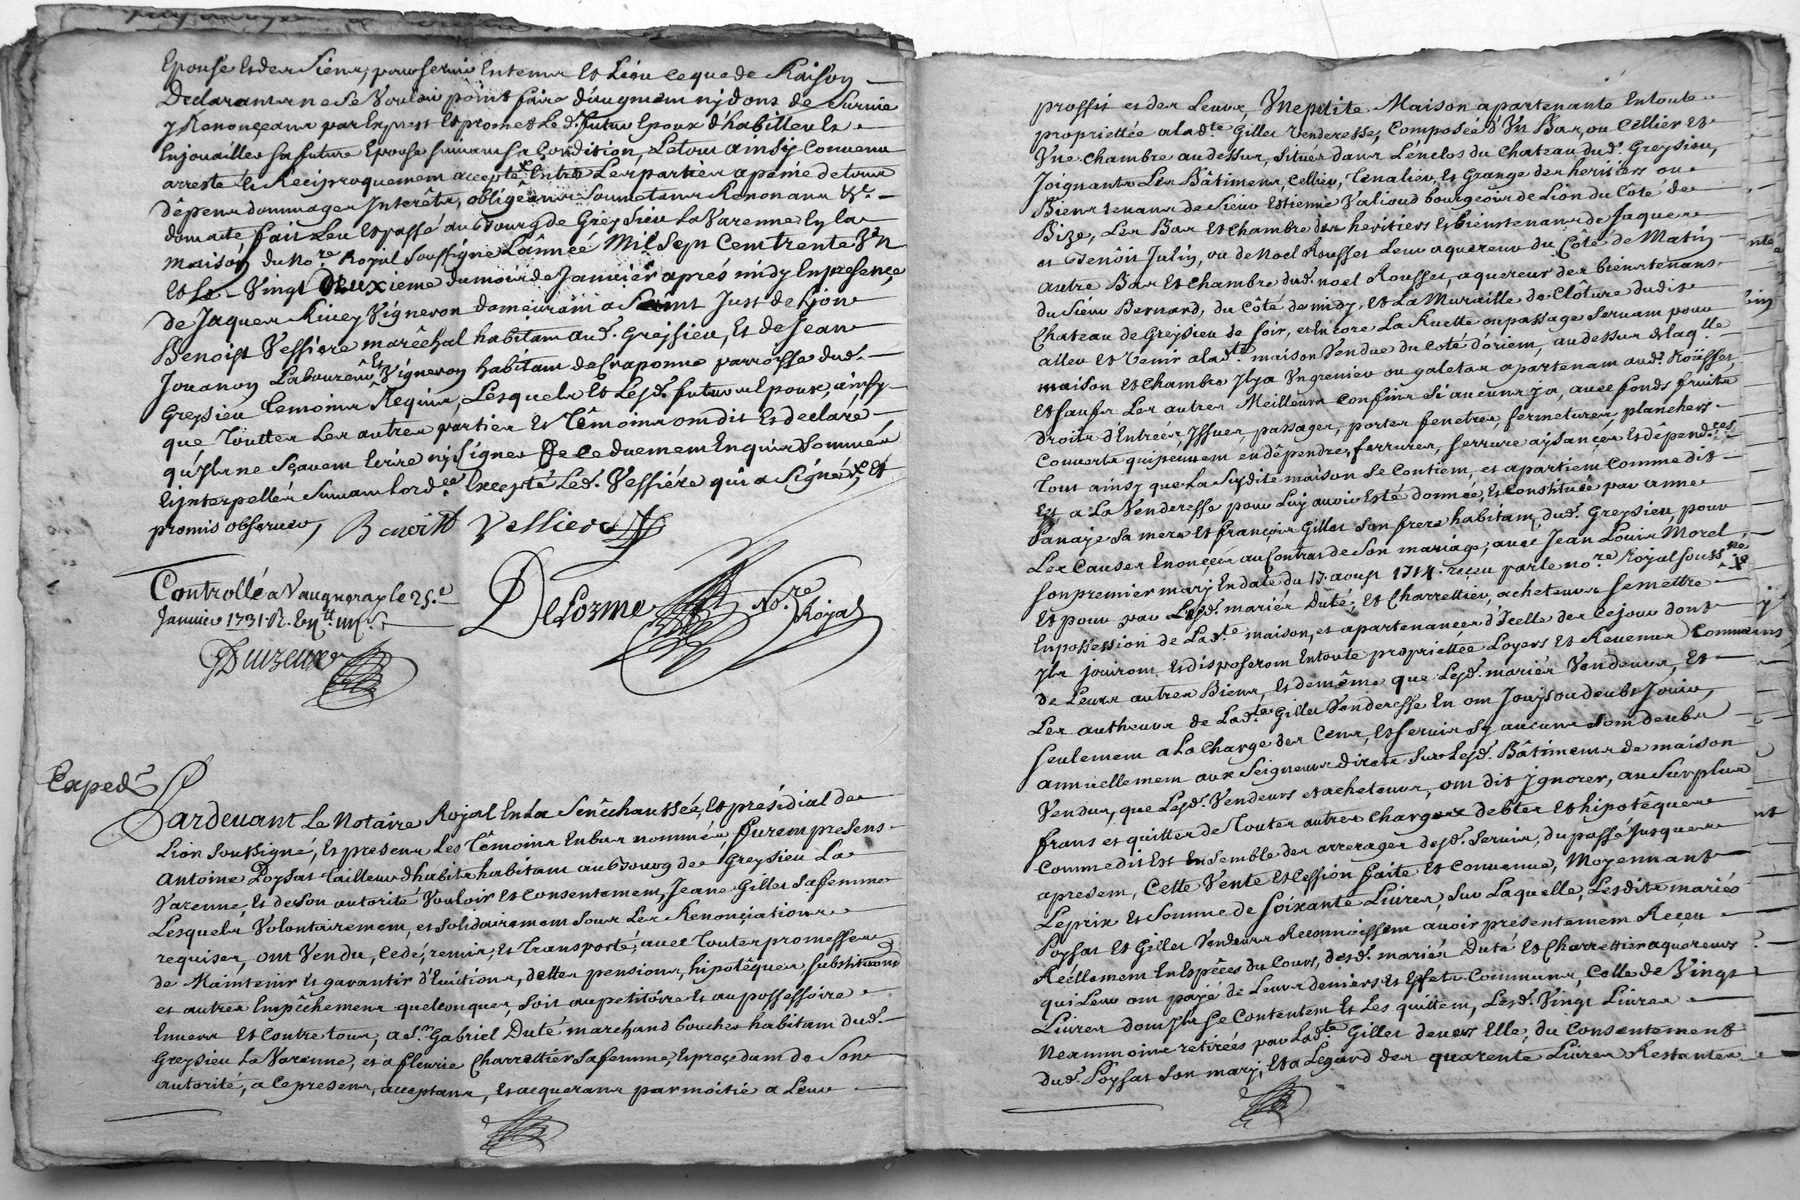 Epouse et des siens, pour servir en tems et lieu ce que de Raison
Declarant ne se vouloir point faire d'augment ny dons de survie
y Renonçeans par Exprest et promet led. futur Epoux d'habiller et
Enjouailler sa future Epouse suivant sa Condition, Le tout ainsy convenu
arresté et Reciproquement accepté Entre Les parties a peine de tous
dêpens dommages Interêts, obligêans soumetans Renonans &c.
dont acte fait Leu et passé au Bourg de Greysieu La Varenne En la
maison du No.re Royal soussigné L'annéé Mil Sept Cent trente Un
et Le Vingt Deuxieme du mois de Janvier aprés midy En presençe
de Jaques Vigneron demeurant a Saint Just de Lion
Benoist Vessiere maréchal habitant aud. Greysieu, Et de Jean
Jouanon Laboureur et Vigneron habitant de Craponne parroisse dud.
Greysieu Temoins Requis, Lesquels et Lesd. futurs Epoux, ainsy
que Toutes Les autres parties et Têmoins ont dit et declaré
qu'Ils ne sçavent Ecrire ny signer De ce duement Enquis sommés
et interpellés suivant L'ord.ce Excepté Led. Vessiére qui a signé, Et
promis observer, Benoitt Vessiere
Controllé a Vaugneray le 25.e
Janvier 1731. R.
Delorme No.re Royal
Exped.
Pardevant Le Notaire Royal En La Senêchaussée, et présidial de
Lion soussigné, Et presens Les Têmoins Enbas nommés, furent presens
Antoine Poysat Tailleur d'habits habitant au Bourg de Greysieu La
Varenne, et de son autorité Vouloir et Consentement, Jeane Gillet sa femme
Lesquels Volontairement, et solidairement sous Les Renonçiations
requises, ont Vendu, Cedé, remis, et Transporté, avec Toutes promesses
de Maintenir et garantir d'Evictions, dettes pensions, hipotêques substitutions
et autres Empêchemens quelconques, soit au petitoire et au possessoire
Envers et contre tous, a s.r Gabriel Duté marchand boucher habitant dud.
Greysieu La Varenne, et a fleurie Charrettier sa femme, Et proçedant de Son
autorité, a Ce presens, acceptans, et acquerans par moitié a Leur
proffit et des Leurs, Une petite Maison apartenante En toute
propriettée a lad.te Gillet Venderesse, Composée d'Un Bas, ou Cellier et
Une chambre au dessus, situés dans L'énclos du Chateau dud. Greysieu,
Joignants Les Bâtimens, Cellier, Tenalier, et Grange des heritiers ou
Biens tenans de Sieur Estienne Valioud bourgeois de Lion du Côté de
Bize, Les Bas et Chambre des heritiers et biens tenans de Jaques
et Benôit Julin, ou de Noel Rousset Leur aquereur du Côté de Matin
autre Bas et Chambre dud. noel Rousset, aquereur des biens tenans
du Sieur Bernard, du Côté de midy, et La Muraille de Clôture dudit
Chateau de Greysieu de soir, et Encore La Ruette ou passage servant pour
aller et Venir a lad.te maison Vendue du Coté d'orient, au dessus de laq.lle
maison et Chambre Il y a Un grenier ou galetas apartenant aud. Roûsset
Et sauf Les autres Meilleurs Confins si aucuns y a, avec fonds fruits
Droits d'Entrées, Issues, passages, portes fenêtres, fermetures, planchers
Couverts qui peuvent en dêpendre, ferrures, serrures aysances et dêpend.ces
Tout ainsy que La Susdite maison se Contient, et apartient Comme dit
Est a La Venderesse pour Luy avoir Esté donnée, et Constituée par Anne
Panaye sa mere et françois Gillet son frere habitant dud. Greysieu, pour
Les Causes Enonçées au Contrat de Son mariage, avec Jean Louis Morel
son premier mary En date du 17. aoust 1714. reçeu par le no.re Royal souss.né
Et pour par Lesd. mariés Duté, et Charrettier, acheteurs se mettre
En possession de Lad.te maison, et apartenances d'Icelle des Ce jour dont
Ils Jouiront, Et disposeront En toute propriettée Loyers et Revenus Comme
de Leurs autres Biens, et de même que Lesd. mariés Vendeurs, Et
Les autheurs de Lad.te Gillet Venderesse En ont Jouy ou deubt Jouir,
seulement a La Charge des Cens, et servis sy aucuns sont deubs
annuellement aux Seigneurs directs sur Lesd. Bâtimens de maison
Vendus, que Lesd. Vendeurs et acheteurs, ont dit Ignorer, au surplus
francs et quittes de Toutes autres charges debtes et hipotêques
Comme dit Est Ensemble des arrerages desd. servis, du passé Jusques
apresent, Cette Vente et Cession faite et Convenue, Moyennant
Le prix et somme de soixante Livres, sur Laquelle, Lesdits mariés
Poysat et Gillet Vendeurs Reconnoissent avoir présentement Reçeu
Réellement En Espêces du Cours, desd. mariés Duté et Charrettier aquereurs
qui Leur ont payé de Leurs deniers et Effets Communs, Celle de Vingt
Livres dont Ils se Contentent et Les quittent, Lesd. Vingt Livres
Neammoins retirées par Lad.te Gillet devers Elle, du Consentement
dud. Poysat son mary, Et a Legard des quarente Livres Restantes